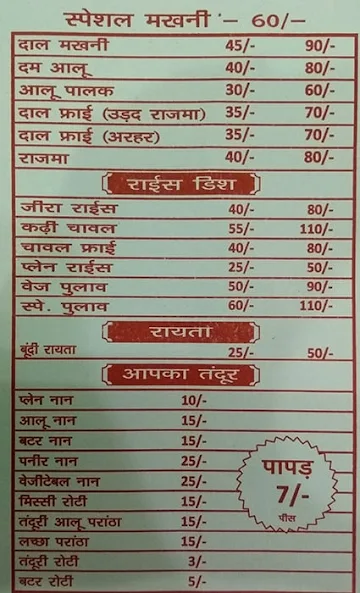 स्पेशल मखनी - 60/-
दाल मखनी 45/- 90/-
दम आलू 40/- 80/-
आलू पालक 30/- 60/-
दाल फ्राई (उड़द राजमा) 35/- 70/-
दाल फ्राई (अरहर) 35/- 70/-
राजमा 40/- 80/-
राईस डिश
जीरा राईस 40/- 80/-
कढ़ी चावल 55/- 110/-
चावल फ्राई 40/- 80/-
प्लेन राईस 25/- 50/-
वेज पुलाव 50/- 90/-
स्पे. पुलाव 60/- 110/-
रायता
बूंदी रायता 25/- 50/-
आपका तंदूर
प्लेन नान 10/-
आलू नान 15/-
बटर नान 15/-
पनीर नान 25/-
वेजीटेबल नान 25/-
मिस्सी रोटी 15/-
तंदूरी आलू परांठा 15/-
लच्छा परांठा 15/-
तंदूरी रोटी 3/-
बटर रोटी 5/-
पापड़
7/-
पीस